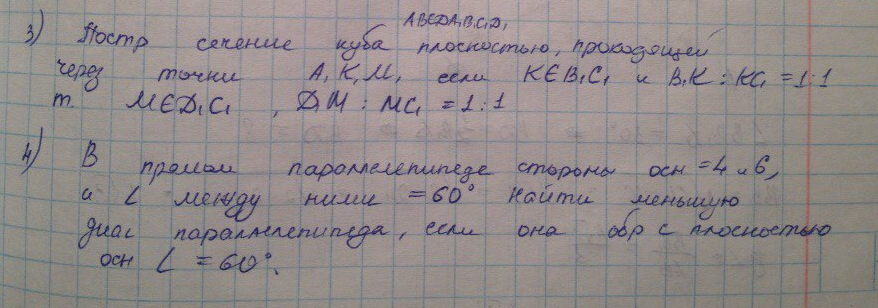 ABCDA₁B₁C₁D₁
3) Постр сечение куба плоскостью, проходящей
через точки A, K, M, если K∈B₁C₁ и B₁K : KC₁ = 1:1
т. M∈D₁C₁, D₁M : MC₁ = 1:1
4) В прямом параллелепипеде стороны осн = 4 и 6,
и ∠ между ними = 60° найти меньшую
диаг параллелепипеда, если она обр с плоскостью
осн ∠ = 60°.